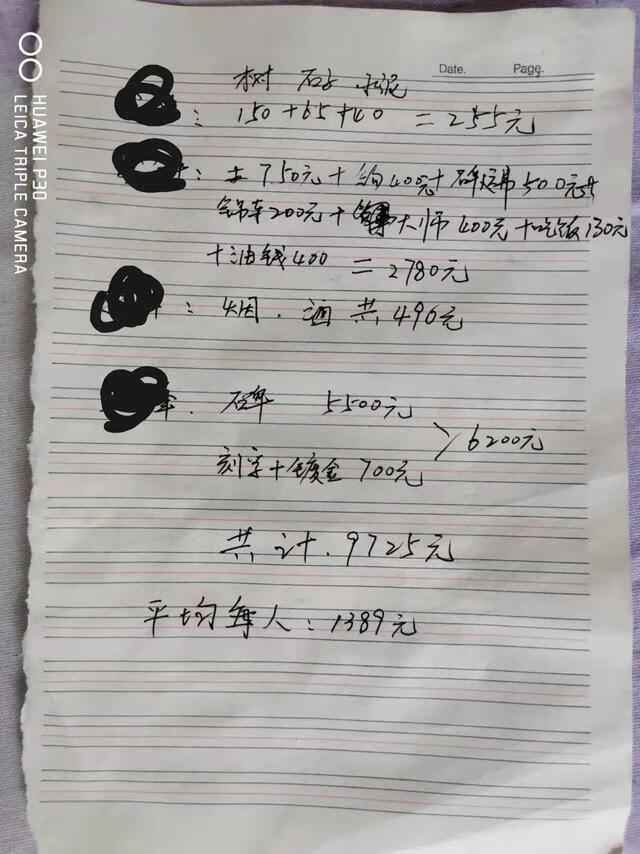 Date. Page.
树 石子 水泥
: 150+65+40 = 255元
: 土750元+ 400元+碑 500元+
吊车200元+ 大师400元+吃饭130元
+油钱400 = 2780元
: 烟.酒 共496元
碑 5500元
> 6200元
刻字+镀金 700元
共计.9725元
平均每人:1389元
HUAWEI P30
LEICA TRIPLE CAMERA